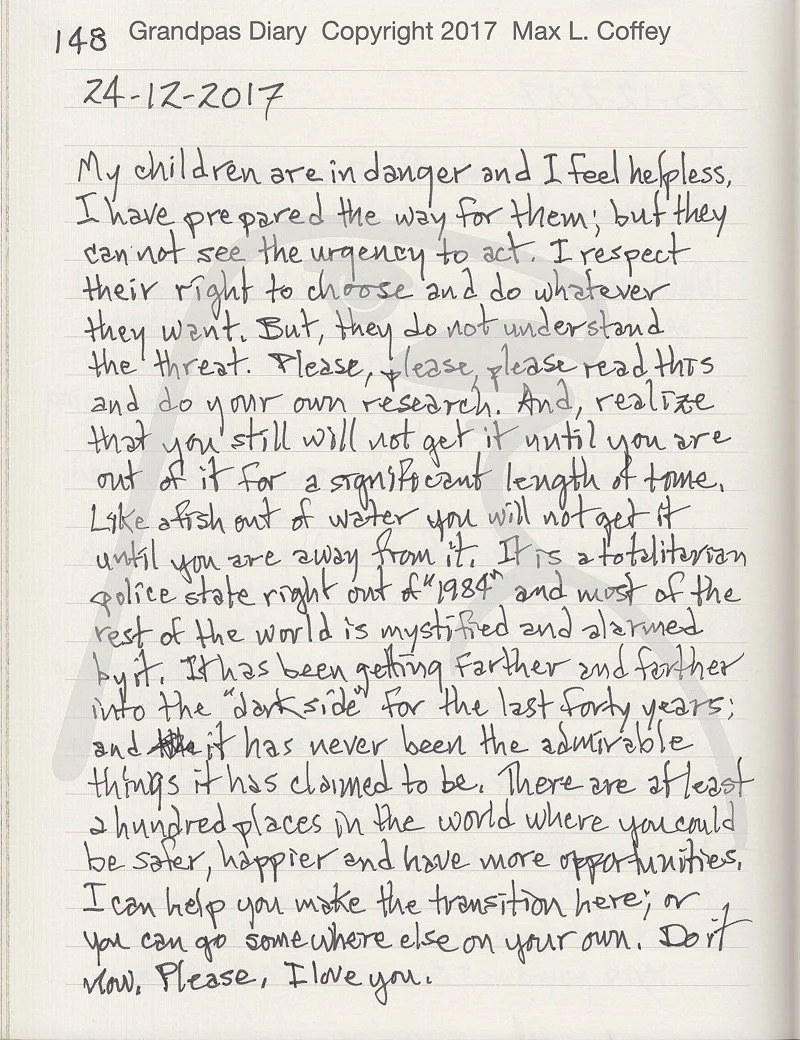 148 Grandpas Diary Copyright 2017 Max L. Coffey
24-12-2017
My children are in danger and I feel helpless,
I have prepared the way for them; but they
can not see the urgency to act. I respect
their right to choose and do whatever
they want. But, they do not understand
the threat. Please, please, please read this
and do your own research. And, realize
that you still will not get it until you are
out of it for a significant length of tome.
Like a fish out of water you will not get it
until you are away from it. It is a totalitarian
police state right out of "1984" and most of the
rest of the world is mystified and alarmed
by it. It has been getting farther and farther
into the "dark side" for the last forty years;
and it has never been the admirable
things it has claimed to be. There are at least
a hundred places in the world where you could
be safer, happier and have more opportunities.
I can help you make the transition here; or
you can go somewhere else on your own. Do it
now. Please, I love you.